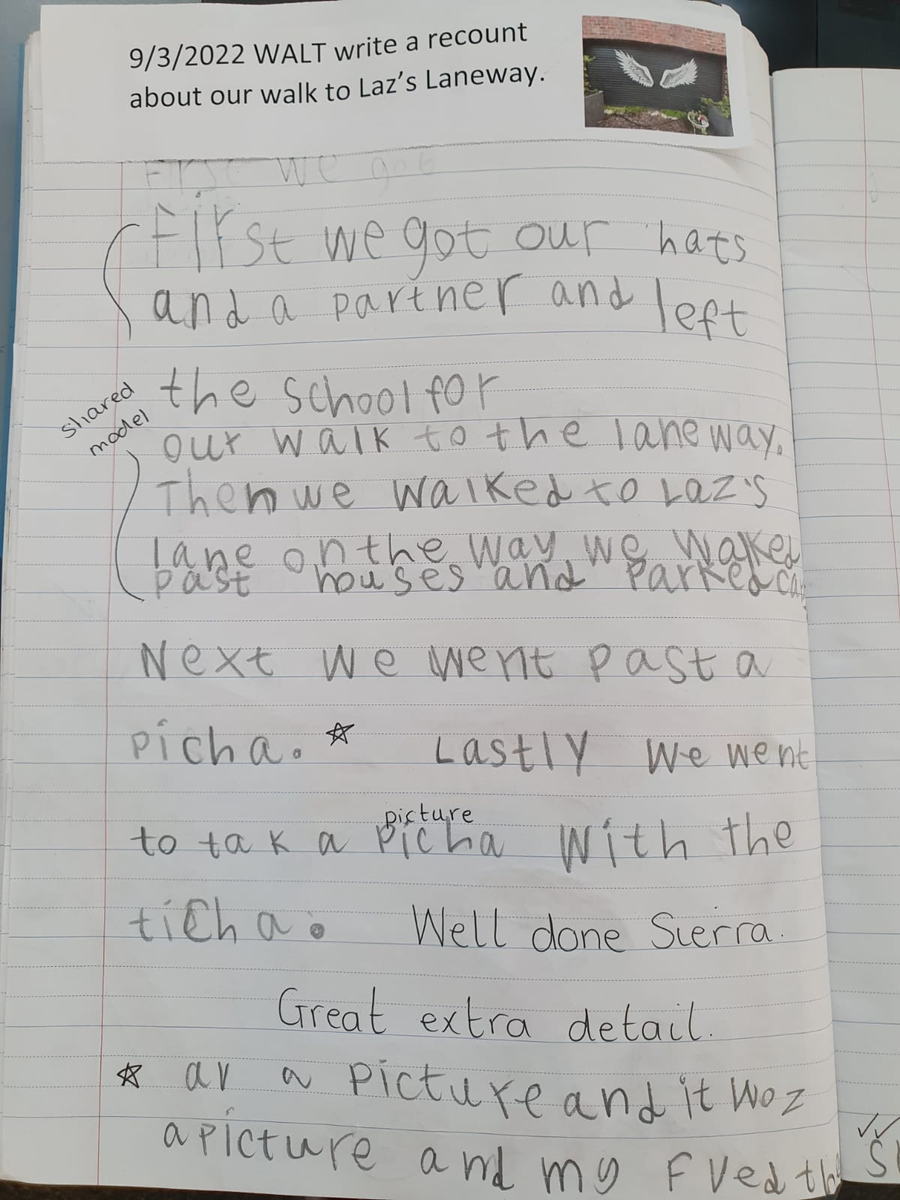 9/3/2022 WALT write a recount
about our walk to Laz's Laneway.
First we got
First we got our hats
and a partner and left
the school for
shared
model
our walk to the laneway.
Then we walked to Laz's
lane on the way we walked
past houses and parked
Next we went past a
picha. ☆ Lastly we went
picture
to tak a picha with the
ticha. Well done Sierra.
Great extra detail.
☆ av a picture and it woz
a picture and my